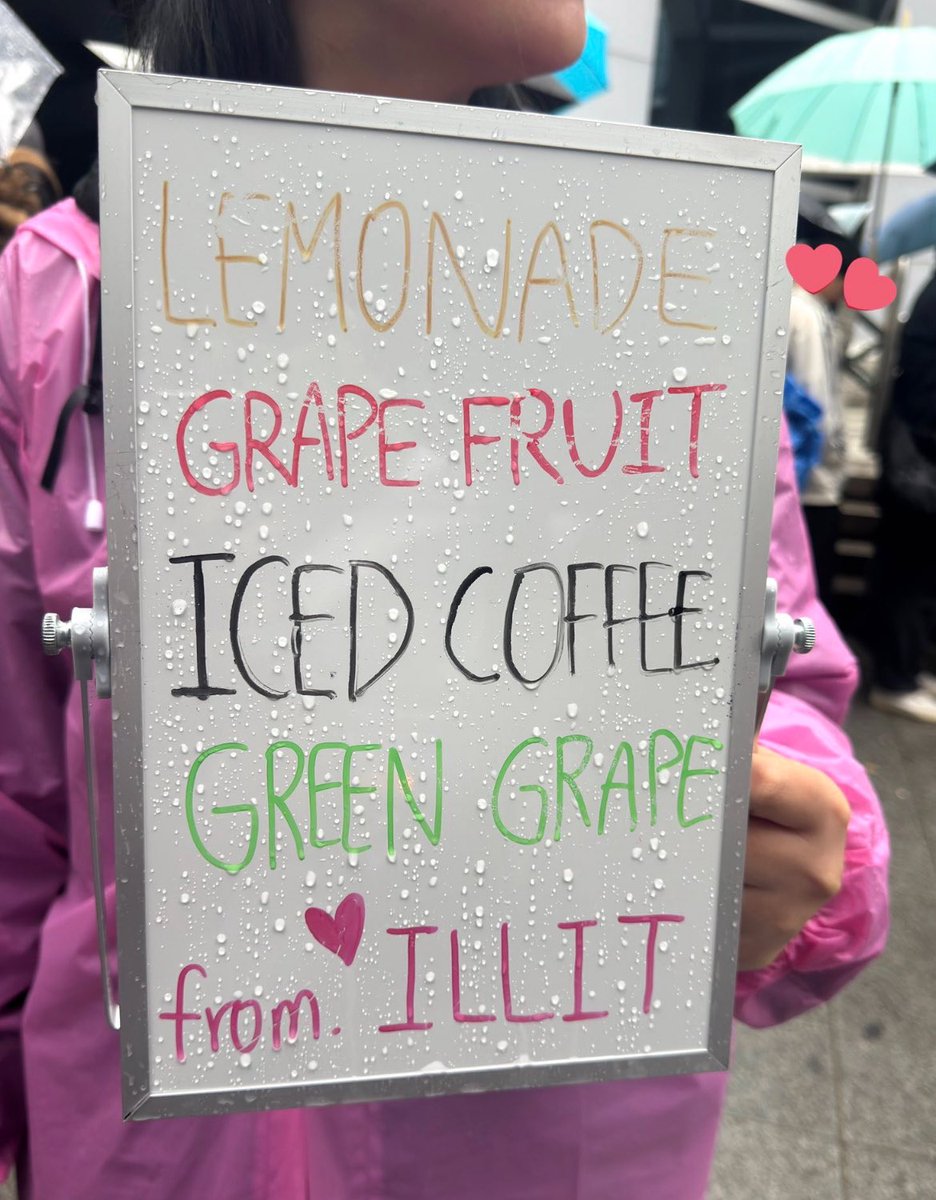 LEMONADE
GRAPE FRUIT
ICED COFFEE
GREEN GRAPE
from. ILLIT